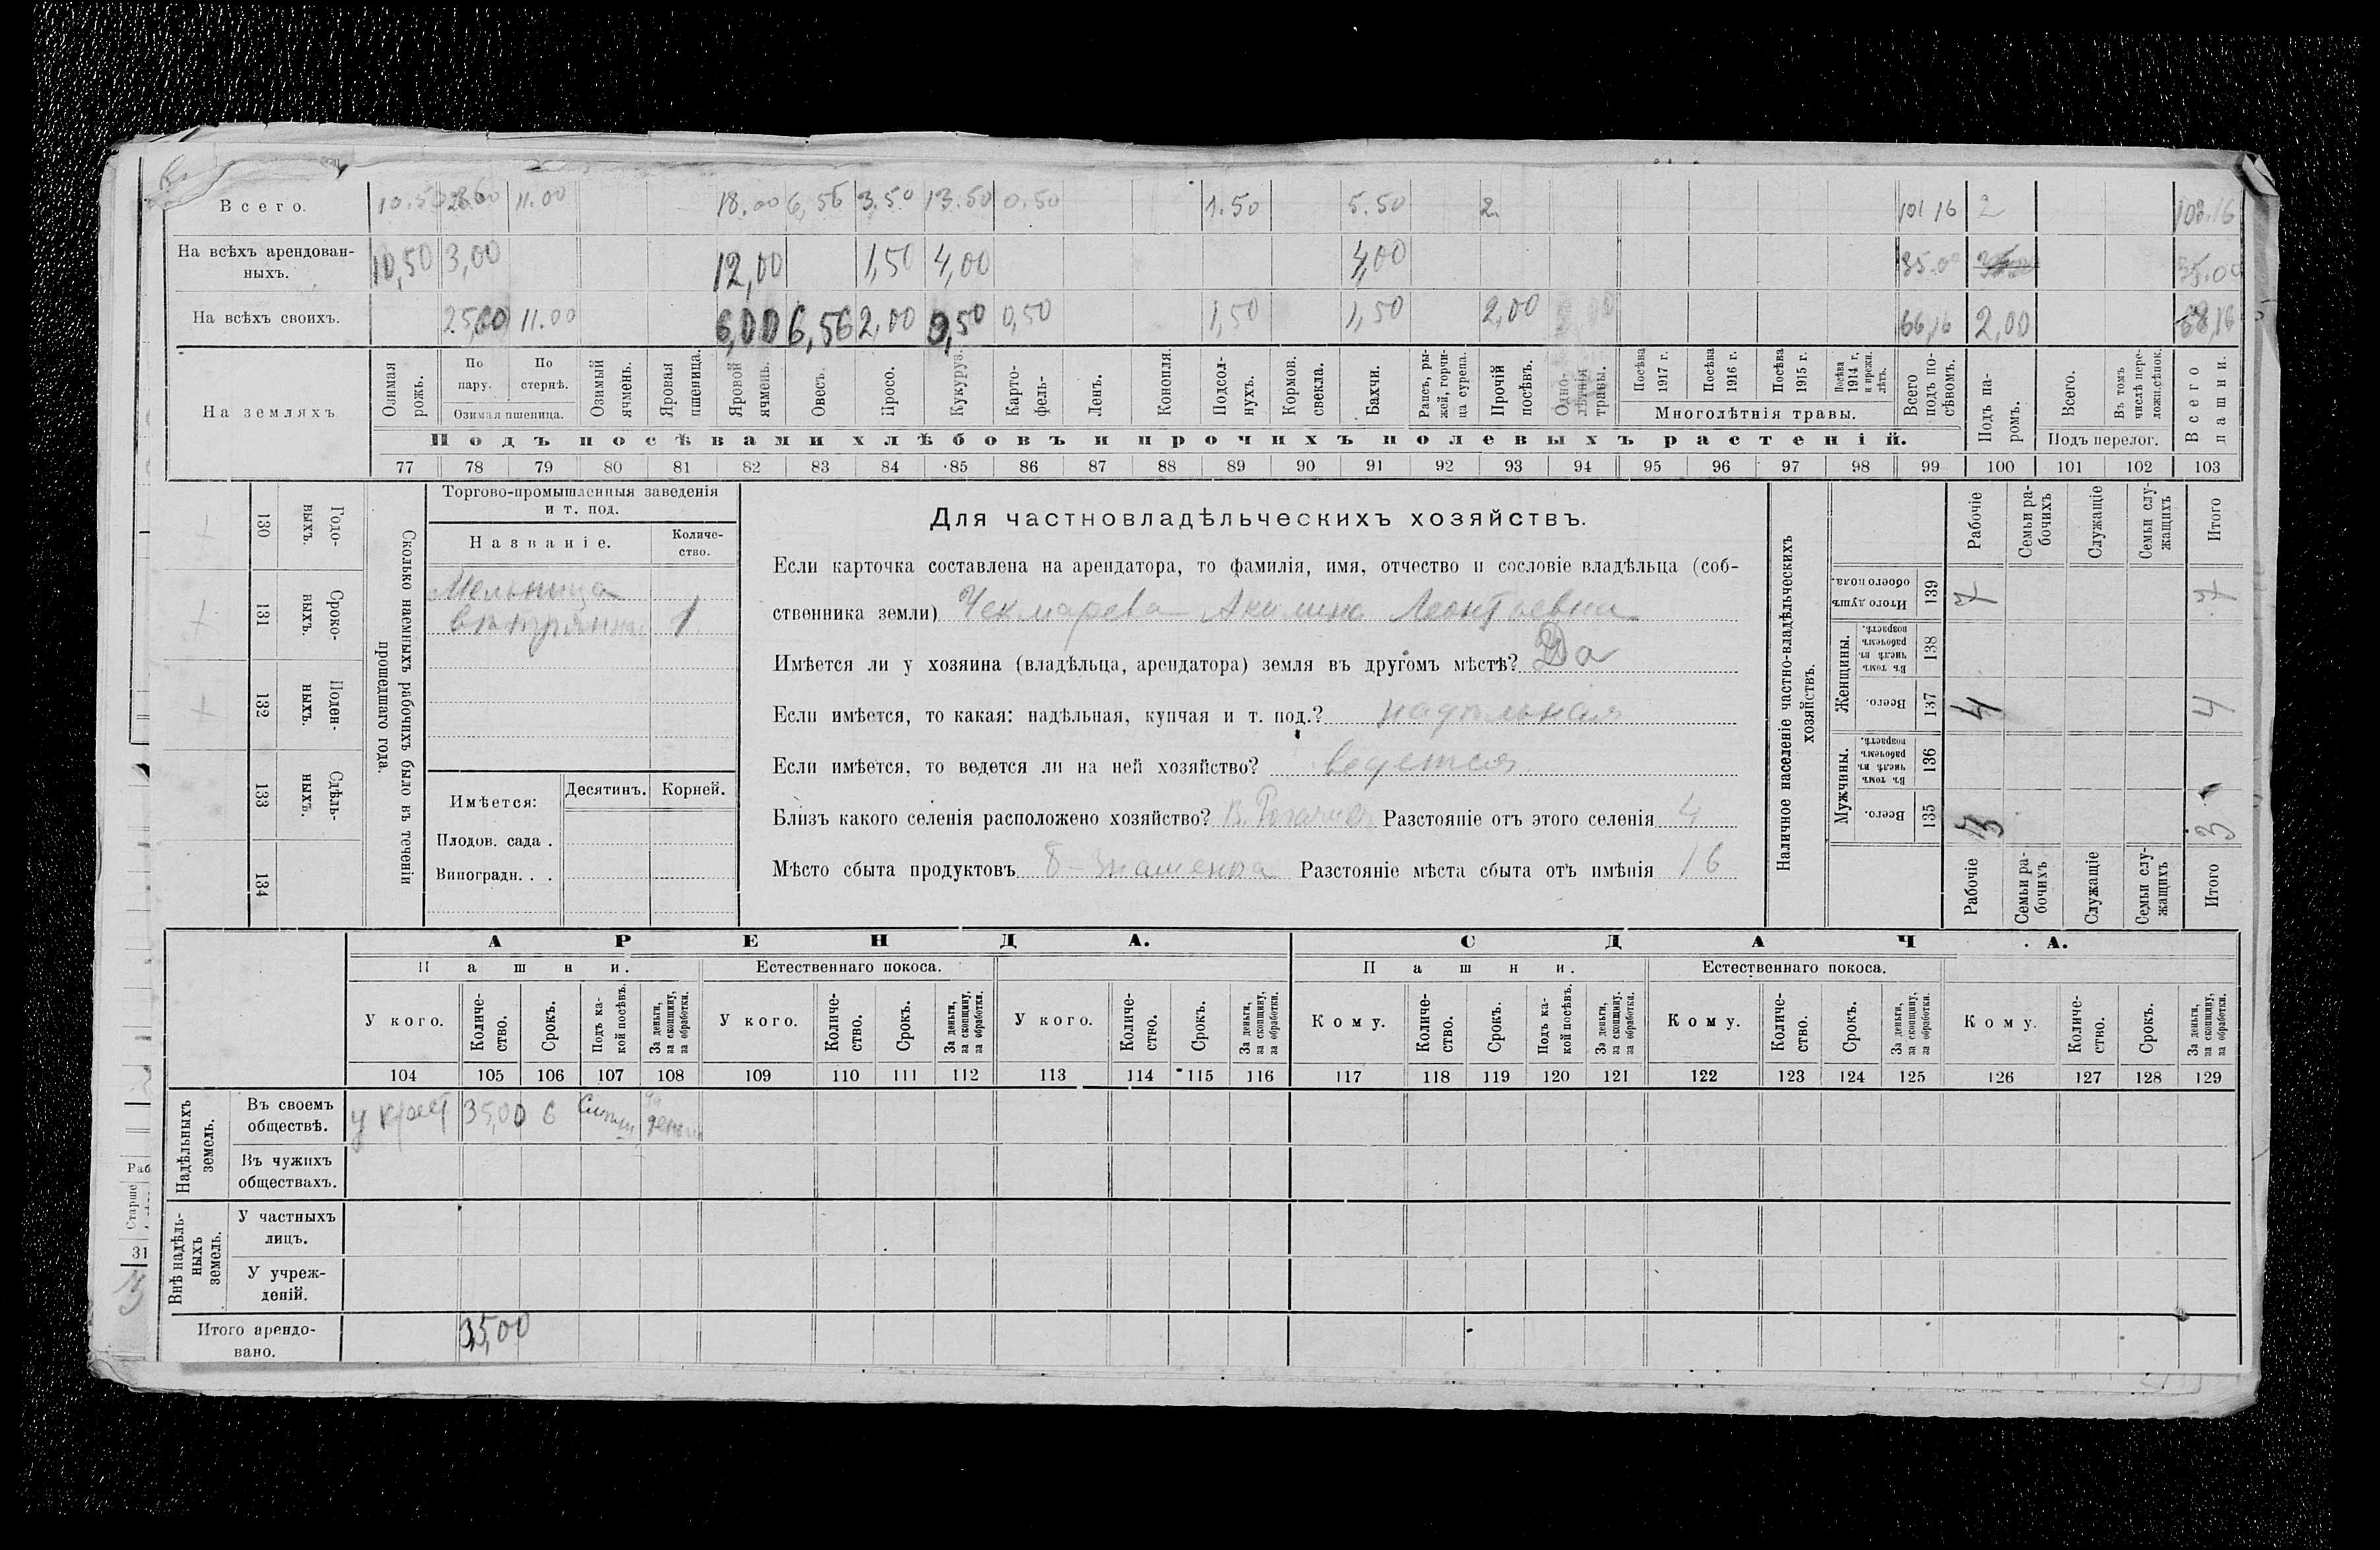 Всего. 10.50 28.60 11.00 18.00 6,56 3.50 13.50 0.50 1.50 5.50 2 101 16 2 103.16
На всѣхъ арендован-
ныхъ. 10,50 3,00 12,00 1,50 4,00 4,00 35.00 35.00
На всѣхъ своихъ. 25,60 11.00 6,00 6,56 2,00 9,50 0,50 1,50 1,50 2,00 66,16 2,00 68,16
На земляхъ
Озимая рожь.
По пару.
По стернѣ.
Озимая пшеница.
Озимый ячмень.
Яровая пшеница.
Яровой ячмень.
Овесъ.
Просо.
Кукуруз.
Карто-
фель-
Ленъ.
Конопля.
Подсол-
нухъ.
Кормов.
свекла.
Бахчи.
Рапсъ, ры-
жей, горчи-
ца сурепа.
Прочій
посѣвъ.
Одно-
лѣтнія
травы.
Посѣва
1917 г.
Посѣва
1916 г.
Посѣва
1915 г.
Посѣва
1914 г.
и прежн.
лѣтъ.
Многолѣтнія травы.
Всего
подъ по-
сѣвомъ.
Подъ па-
ромъ.
Всего.
Въ томъ
числѣ пере-
ложн.сѣнок.
Подъ перелог.
Всего
пашни.
Подъ посѣвами хлѣбовъ и прочихъ полевыхъ растеній.
77 78 79 80 81 82 83 84 85 86 87 88 89 90 91 92 93 94 95 96 97 98 99 100 101 102 103
Сколько наемныхъ рабочихъ было въ теченіи
прошедшаго года.
Годо-
выхъ.
130 +
Сроко-
выхъ.
131 +
Поден-
ныхъ.
132 +
Сдѣль-
ныхъ.
133
134
Торгово-промышленныя заведенія
и т. под.
Названіе.
Количе-
ство.
Мельница
вѣтряная 1
Имѣется:
Десятинъ. Корней.
Плодов. сада .
Виноградн. . .
Для частновладѣльческихъ хозяйствъ.
Если карточка составлена на арендатора, то фамилія, имя, отчество и сословіе владѣльца (соб-
ственника земли) Чекмарева Акилина Леонтьевна
Имѣется ли у хозяина (владѣльца, арендатора) земля въ другомъ мѣстѣ? Да
Если имѣется, то какая: надѣльная, купчая и т. под.? надѣльная
Если имѣется, то ведется ли на ней хозяйство? ведется
Близъ какого селенія расположено хозяйство? В. Рогачик Разстояніе отъ этого селенія 4
Мѣсто сбыта продуктовъ Б-Знаменка Разстояніе мѣста сбыта отъ имѣнія 16
Наличное населеніе частно-владѣльческихъ
хозяйствъ.
Рабочіе
Семьи ра-
бочихъ
Служащіе
Семьи слу-
жащихъ
Итого
Итого душъ
обоего пола.
139 7 7
Женщины.
Въ томъ
числѣ въ
рабочемъ
возрастѣ.
138
Всего.
137 4 4
Мужчины.
Въ томъ
числѣ въ
рабочемъ
возрастѣ.
136
Всего.
135 3 3
Рабочіе
Семьи ра-
бочихъ
Служащіе
Семьи слу-
жащихъ
Итого
АРЕНДА. СДАЧА.
Пашни. Естественнаго покоса. Пашни. Естественнаго покоса.
У кого.
Количе-
ство.
Срокъ.
Подъ ка-
кой посѣвъ.
За деньги,
за скопщину,
за обработки.
У кого.
Количе-
ство.
Срокъ.
За деньги,
за скопщину,
за обработки.
У кого.
Количе-
ство.
Срокъ.
За деньги,
за скопщину,
за обработки.
Кому.
Количе-
ство.
Срокъ.
Подъ ка-
кой посѣвъ.
За деньги,
за скопщину.
за обработки.
Кому.
Количе-
ство.
Срокъ.
За деньги,
за скопщину,
за обработки.
Кому.
Количе-
ство.
Срокъ.
За деньги,
за скопщину,
за обработки.
104 105 106 107 108 109 110 111 112 113 114 115 116 117 118 119 120 121 122 123 124 125 126 127 128 129
Надѣльныхъ
земель.
Въ своемъ
обществѣ. у крест 35,00 6 за деньги
Въ чужихъ
обществахъ.
Внѣ надѣль-
ныхъ
земель.
У частныхъ
лицъ.
У учреж-
деній.
Итого арендо-
вано. 35,00
Раб
Старше
31
3